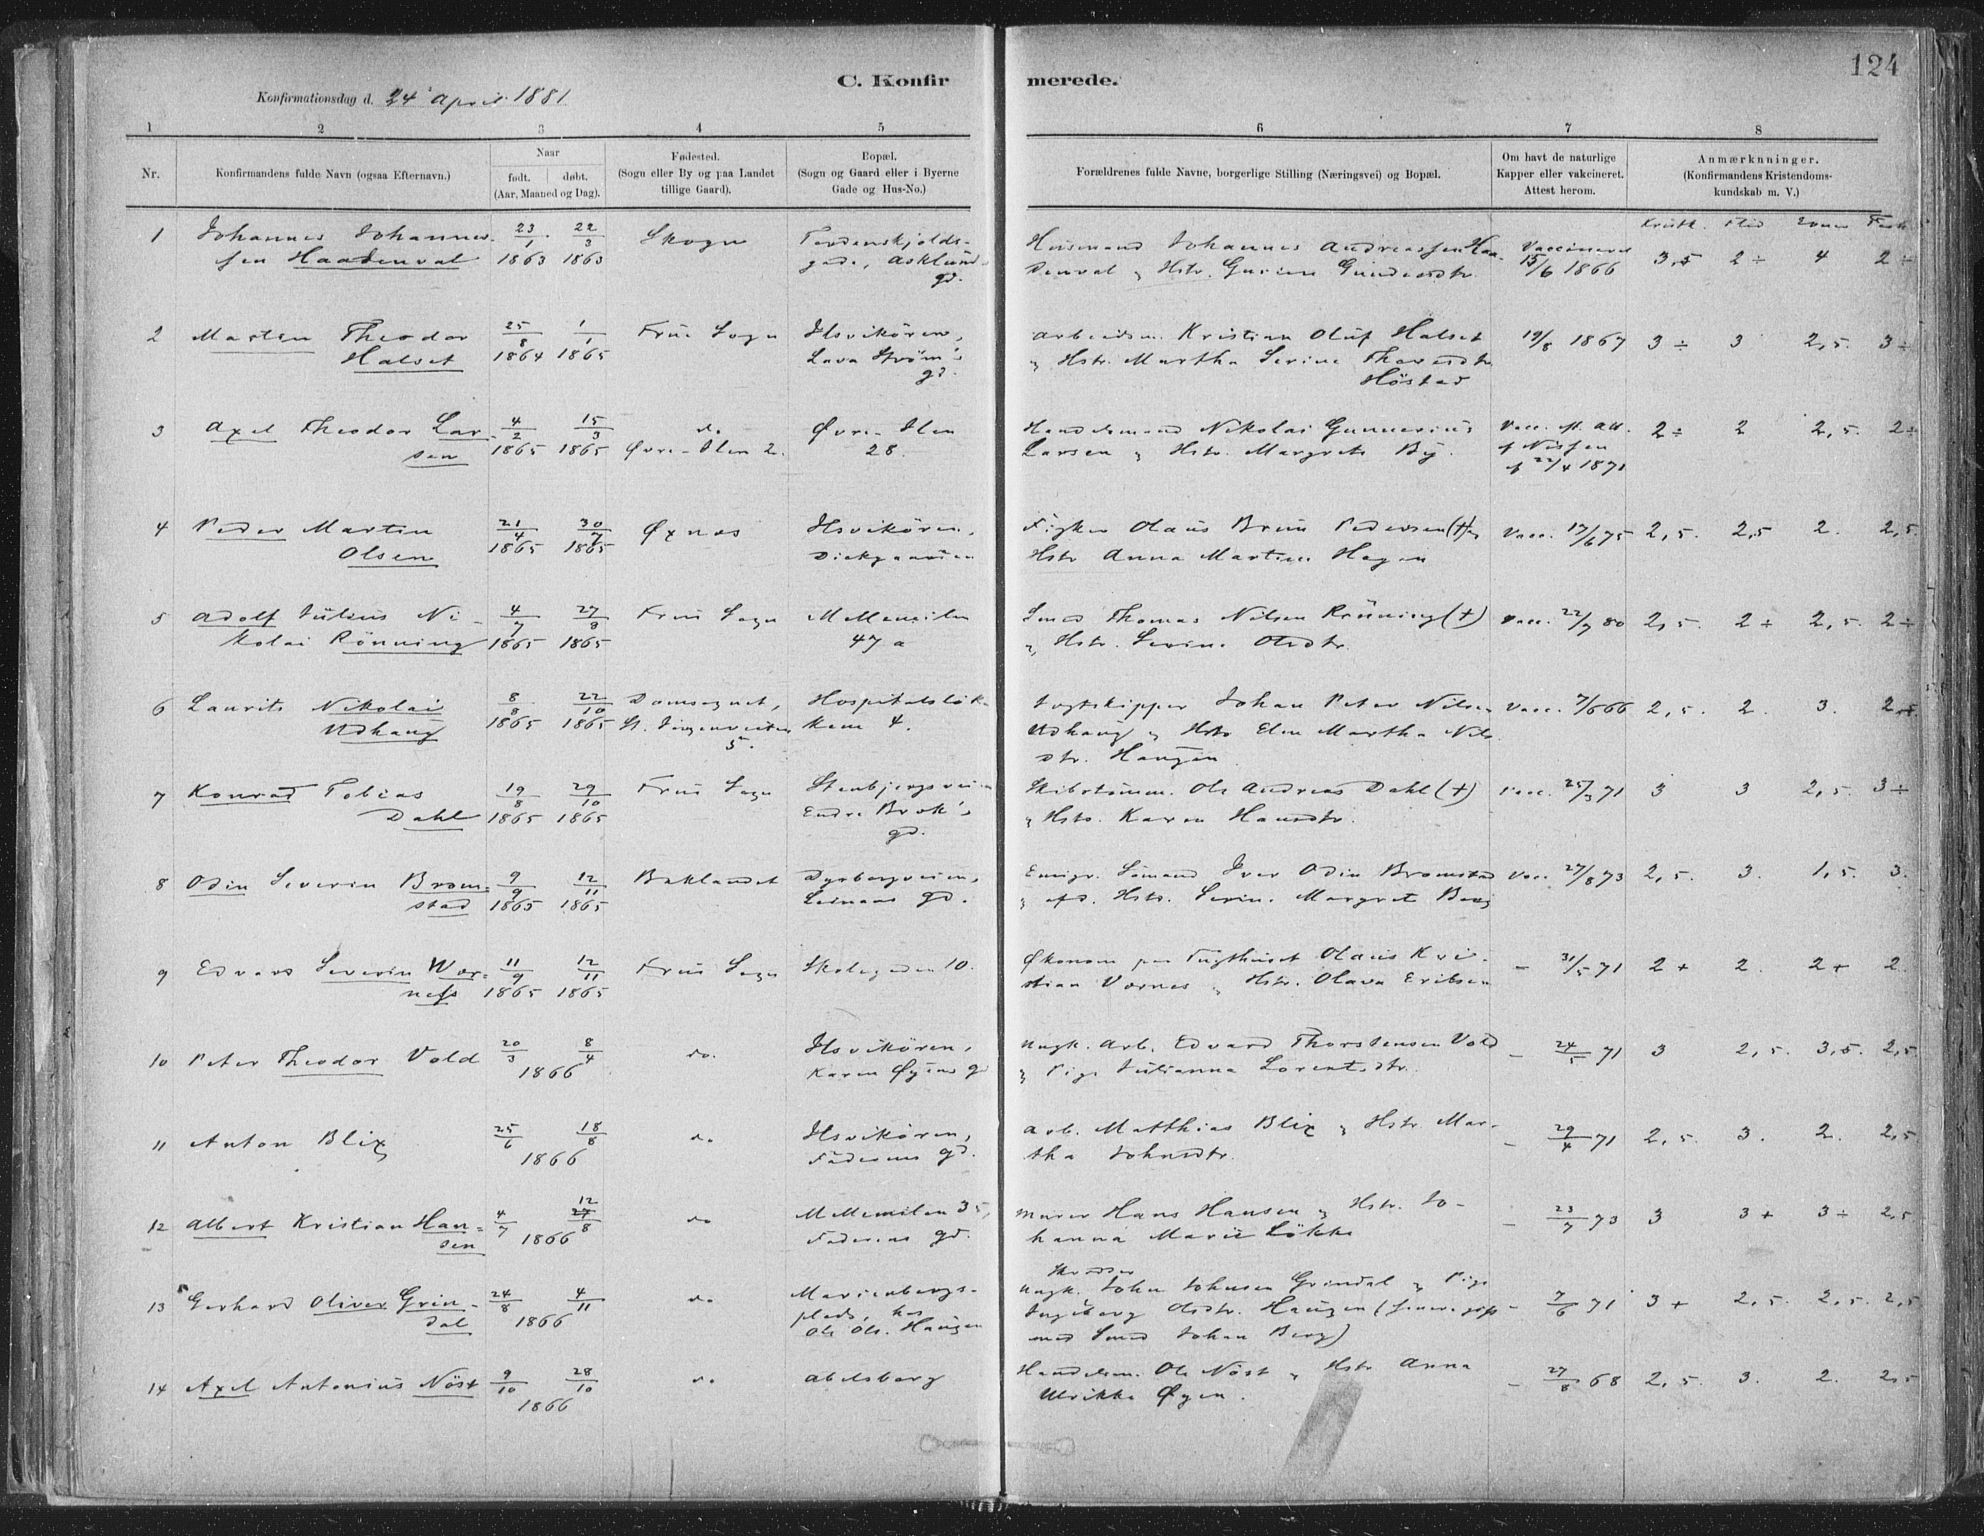 124
C. Konfirmerede.
Konfirmationsdag d. 24 April 1881
1 2 3 4 5 6 7 8
Nr.
Konfirmandens fulde Navn (ogsaa Efternavn.)
Naar
født. døbt.
(Aar, Maaned og Dag).
Fødested.
(Sogn eller By og paa Landet
tillige Gaard).
Bopæl.
(Sogn og Gaard eller i Byerne
Gade og Hus-No.)
Forældrenes fulde Navne, borgerlige Stilling (Næringsvei) og Bopæl.
Om havt de naturlige
Kapper eller vakcineret.
Attest herom.
Anmærknninger.
(Konfirmandens Kristendoms-
kundskab m. V.)
1 Johannes Johannes- 23/1 22/3 Skogn Tordenskjolds- Husmand Johannes Andreassen Haa- Vaccineret
sen Haadenval 1863 1863 gade, Asklund denval & Hstr. Gunderdtr. 15/6 1866 3,5 2÷ 4 2÷
gd.
2 Marten Theodor 25/8 1/1 Frue Sogn Ilsvikören, Arbeidsm. Kristian Oluf Halset 19/8 1867 3÷ 3 2,5. 3÷
Halset 1864 1865 Lava Ström's & Hstr. Martha Serine
gd. Höstad
3 Axel Theodor Lar- 4/2 15/3 do Øvre-Ilen Handelsmand Nikolai Gunnerius Vacc. 2÷ 2 2,5. 2÷
sen 1865 1865 Øvre-Ilen 2. 28. Larsen & Hstr. Margrete By. f Nissen
f 22/4 1871
4 Peder Martin 21/4 30/7 Øxnes Ilsvikören, Fisker Olaus Brun Pedersen (†) & Vacc. 17/6 75 2,5. 2,5 2. 2,5.
Olsen 1865 1865 Hstr Anna Martine Hagen
5 Adolf Julius Ni- 4/7 27/8 Frue Sogn Mellemilen Smed Thomas Nilsen Rönning (†) Vacc. 22/7 80 2,5. 2÷ 2,5. 2÷
kolai Rönning 1865 1865 47 a & Hstr. Serine Olsdtr.
6 Laurits Nikolai 8/8 22/10 Domsognet, Hospitalslök- Jagtskipper Johan Peter Nilsen Vacc. 7/6 66 2,5. 2. 3.
Udhaug 1865 1865 kem 4. Udhaug & Hstr Elen Martha Nils-
5. dtr. Haugen
7 Konrad Tobias 19/8 29/10 Frue Sogn Stenbjergsveien Skibstömm. Ole Andreas Dahl (†) Vacc. 25/3 71 3 3 2,5. 3÷
Dahl 1865 1865 Endre Brok's & Hstr. Karen Hansdtr.
gd.
8 Odin Severin Brom- 9/9 12/11 Baklandet Dyrborgveien, Emigr. Sömand Iver Odin Bromstad Vacc. 27/8 73 2,5. 3. 1,5. 3.
stad 1865 1865 gd. & Hstr. Serine Margret Berg
9 Edvard Severin Wær- 11/9 12/11 Frue Sogn Skolegaden 10. Økonom paa Tugthuset Olaus Kri- – 31/5 71 2+ 2. 2+ 2.
ness 1865 1865 stian Værnes & Hstr. Olava Eriksen
10 Peter Theodor Vold 20/3 8/4 do. Ilsvikören, Ungk. Arb. Edvard Thorstensen Vold – 24/5 71 3 2,5. 3,5. 2,5.
1866 Karen Øyens gd & Pige Julianna Lorentsdtr.
11 Anton Blix 25/6 18/8 do Ilsvikören, Arb. Matthias Blix & Hstr Mar- – 29/4 71 2,5. 3. 2. 2,5
1866 Faderens gd. tha Johnsdtr.
12 Albert Kristian Han- 4/7 12/8 do Mellemilen 35, Murer Hans Hansen & Hstr. Jo- – 23/7 73 3 3+ 3÷ 2,5
sen 1866 Faderens gd. hanna Marie Lökke
13 Gerhard Oliver Grin- 24/8 4/11 do Marienbergs- Ungk. John Johnsen Grindal & Pige – 7/6 71 3+ 2,5. 2,5. 2,5
dal 1866 plads, hos Ingeborg Olsdtr. Haugen (senere gift
Ole Ols. Haugen med Smed Johan Berg)
14 Axel Antonius Nöst 9/10 28/10 do Abelsborg Handelsm. Ole Nöst & Hstr Anna – 27/8 68 2,5. 3. 2. 2,5
1866 Ulrikke Øyen.